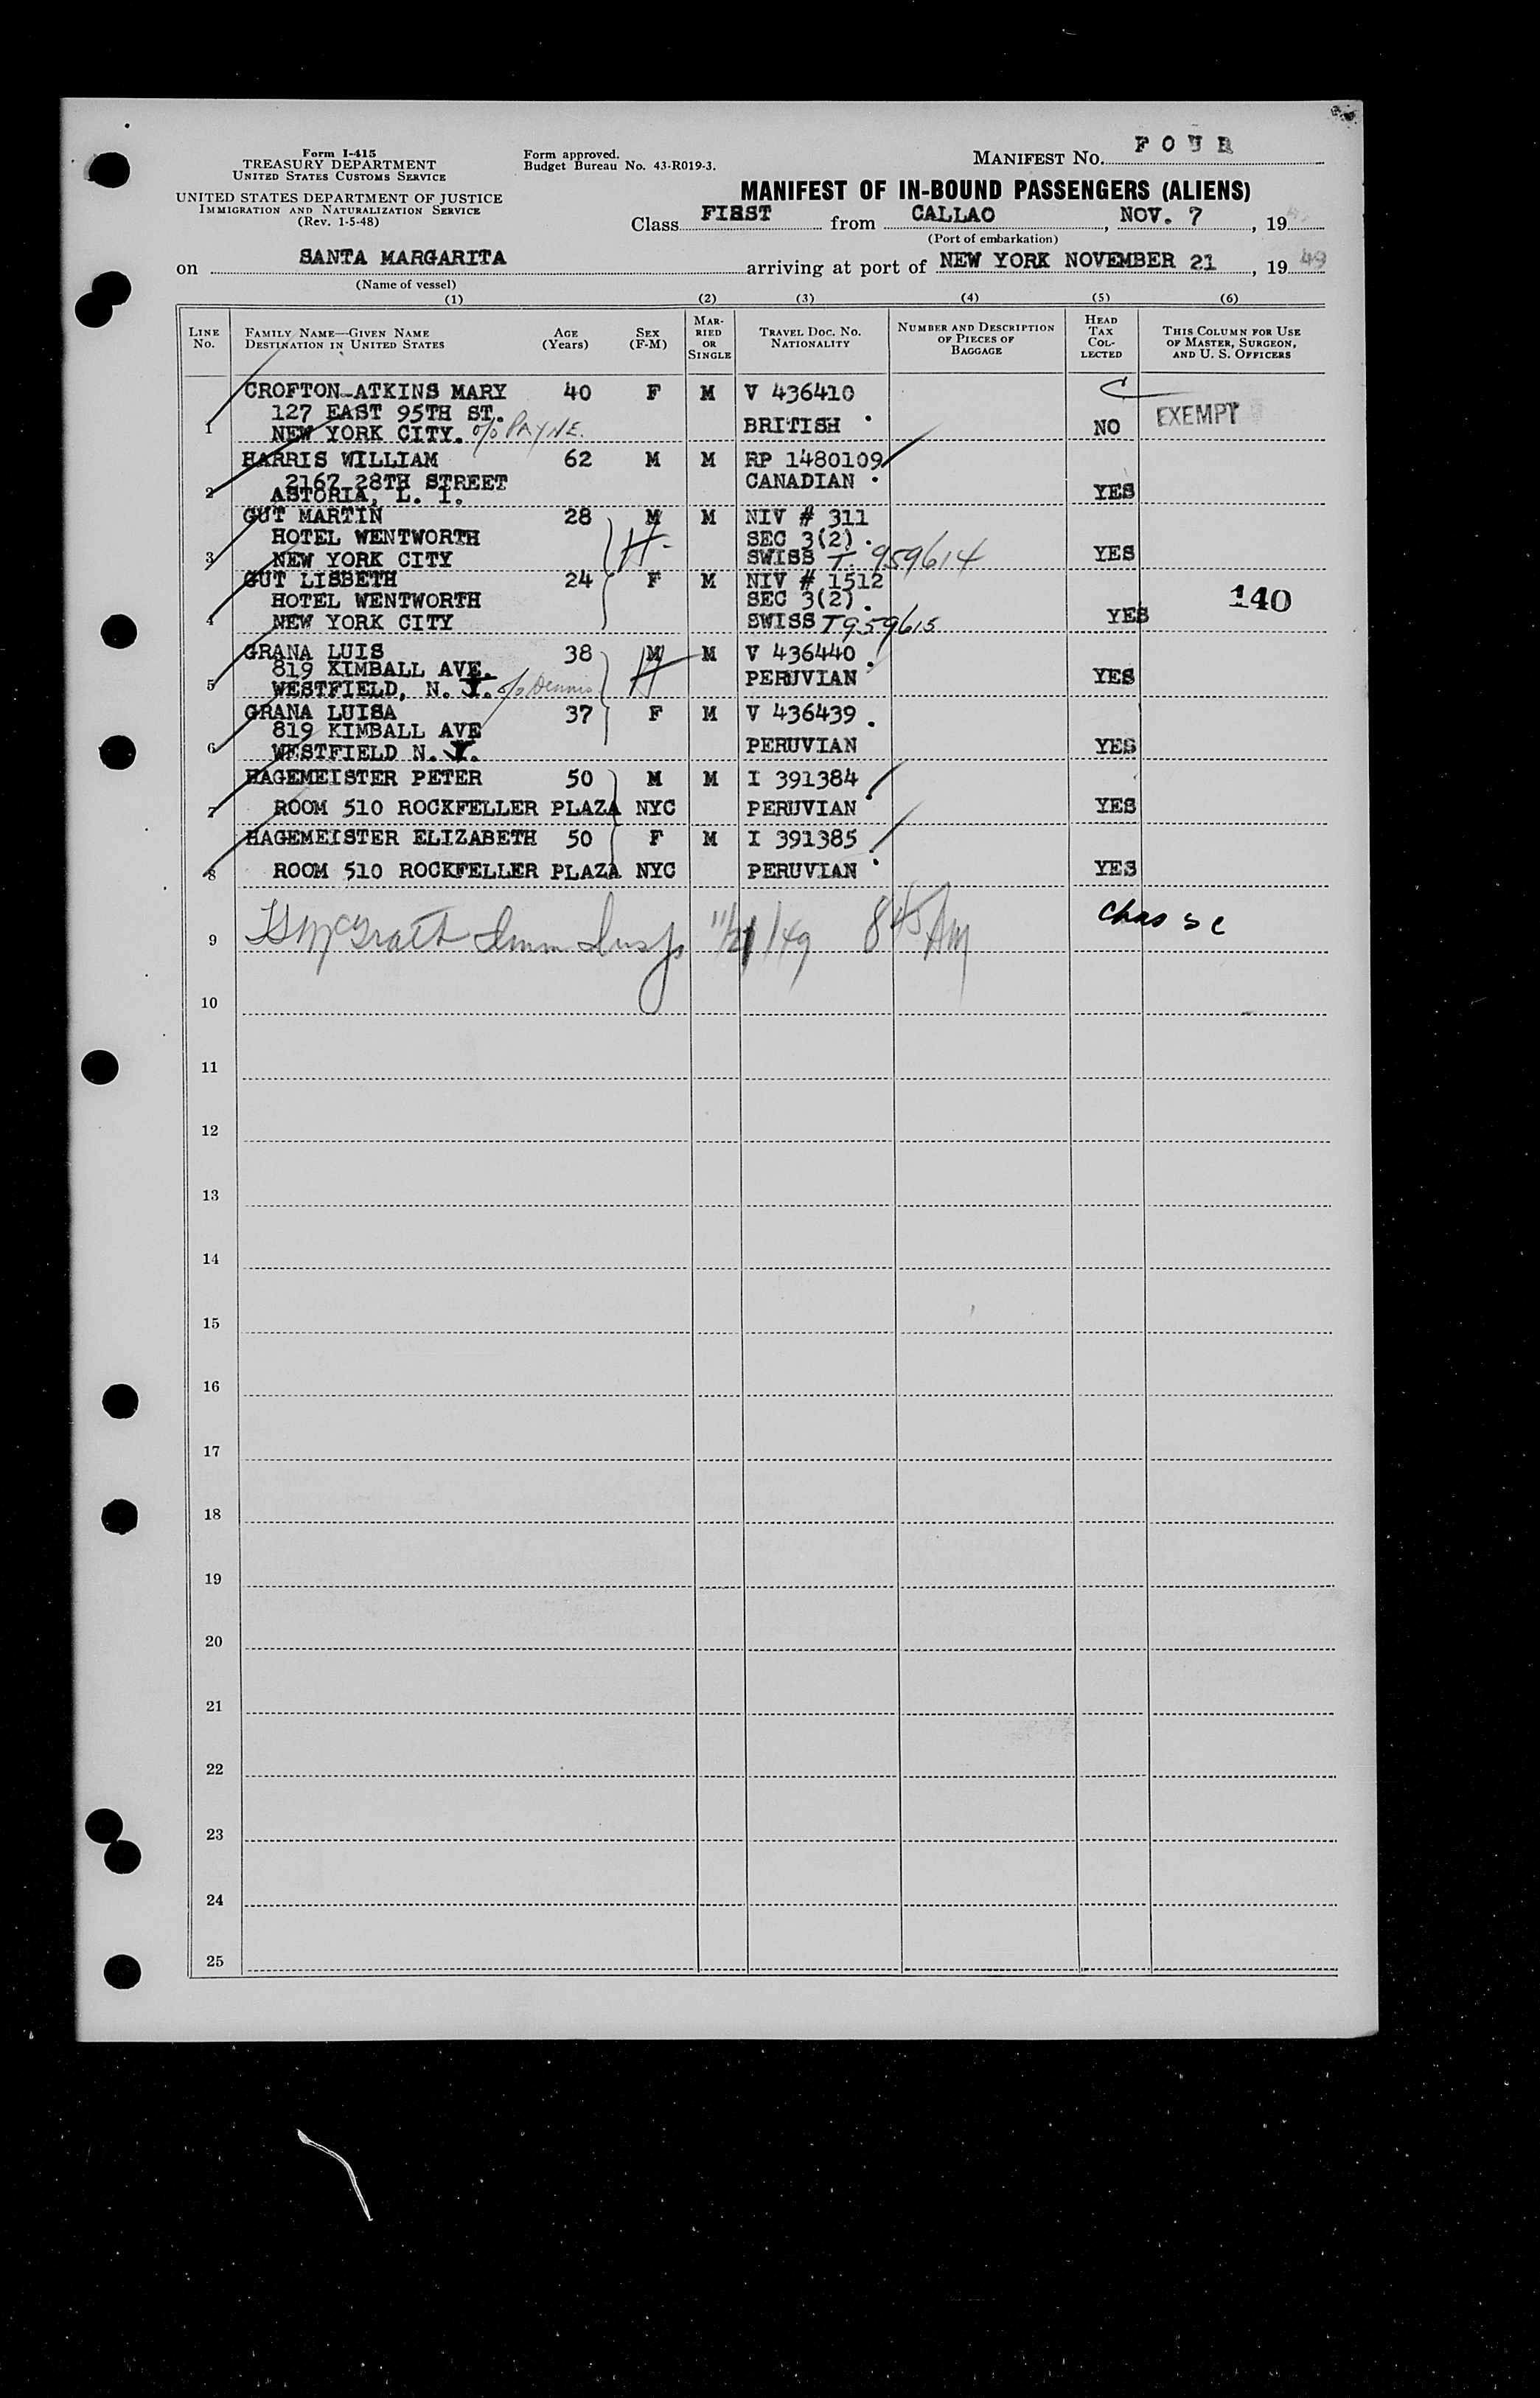 Form I-415
TREASURY DEPARTMENT
UNITED STATES CUSTOMS SERVICE
UNITED STATES DEPARTMENT OF JUSTICE
IMMIGRATION AND NATURALIZATION SERVICE
(Rev. 1-5-48)
Form approved.
Budget Bureau No. 43-R019-3.
MANIFEST No. FOUR
MANIFEST OF IN-BOUND PASSENGERS (ALIENS)
Class FIRST from CALLAO, NOV. 7, 19
(Port of embarkation)
on SANTA MARGARITA arriving at port of NEW YORK NOVEMBER 21, 19 49
(Name of vessel)
(1) (2) (3) (4) (5) (6)
LINE No. FAMILY NAME—GIVEN NAME DESTINATION IN UNITED STATES AGE (Years) SEX (F-M) MARRIED OR SINGLE TRAVEL DOC. NO. NATIONALITY NUMBER AND DESCRIPTION OF PIECES OF BAGGAGE HEAD TAX COLLECTED THIS COLUMN FOR USE OF MASTER, SURGEON, AND U. S. OFFICERS
CROFTON-ATKINS MARY 40 F M V 436410
127 EAST 95TH ST. EXEMPT
1 NEW YORK CITY. c/o PAYNE. BRITISH NO
HARRIS WILLIAM 62 M M RP 1480109
2167 28TH STREET CANADIAN
2 ASTORIA, L. I. YES
GUT MARTIN 28 M M NIV # 311
HOTEL WENTWORTH H- SEC 3(2).
3 NEW YORK CITY SWISS T. 959614 YES
GUT LISBETH 24 F M NIV # 1512
HOTEL WENTWORTH SEC 3(2). 140
4 NEW YORK CITY SWISS T959615 YES
GRANA LUIS 38 M M V 436440
819 KIMBALL AVE. H
5 WESTFIELD, N. J. c/o Dennis PERUVIAN YES
GRANA LUISA 37 F M V 436439
819 KIMBALL AVE
6 WESTFIELD N. J. PERUVIAN YES
HAGEMEISTER PETER 50 M M I 391384
7 ROOM 510 ROCKFELLER PLAZA NYC PERUVIAN YES
HAGEMEISTER ELIZABETH 50 F M I 391385
8 ROOM 510 ROCKFELLER PLAZA NYC PERUVIAN YES
9 McGrath Imm Insp 11/21/49 8 45 AM Chas
10
11
12
13
14
15
16
17
18
19
20
21
22
23
24
25